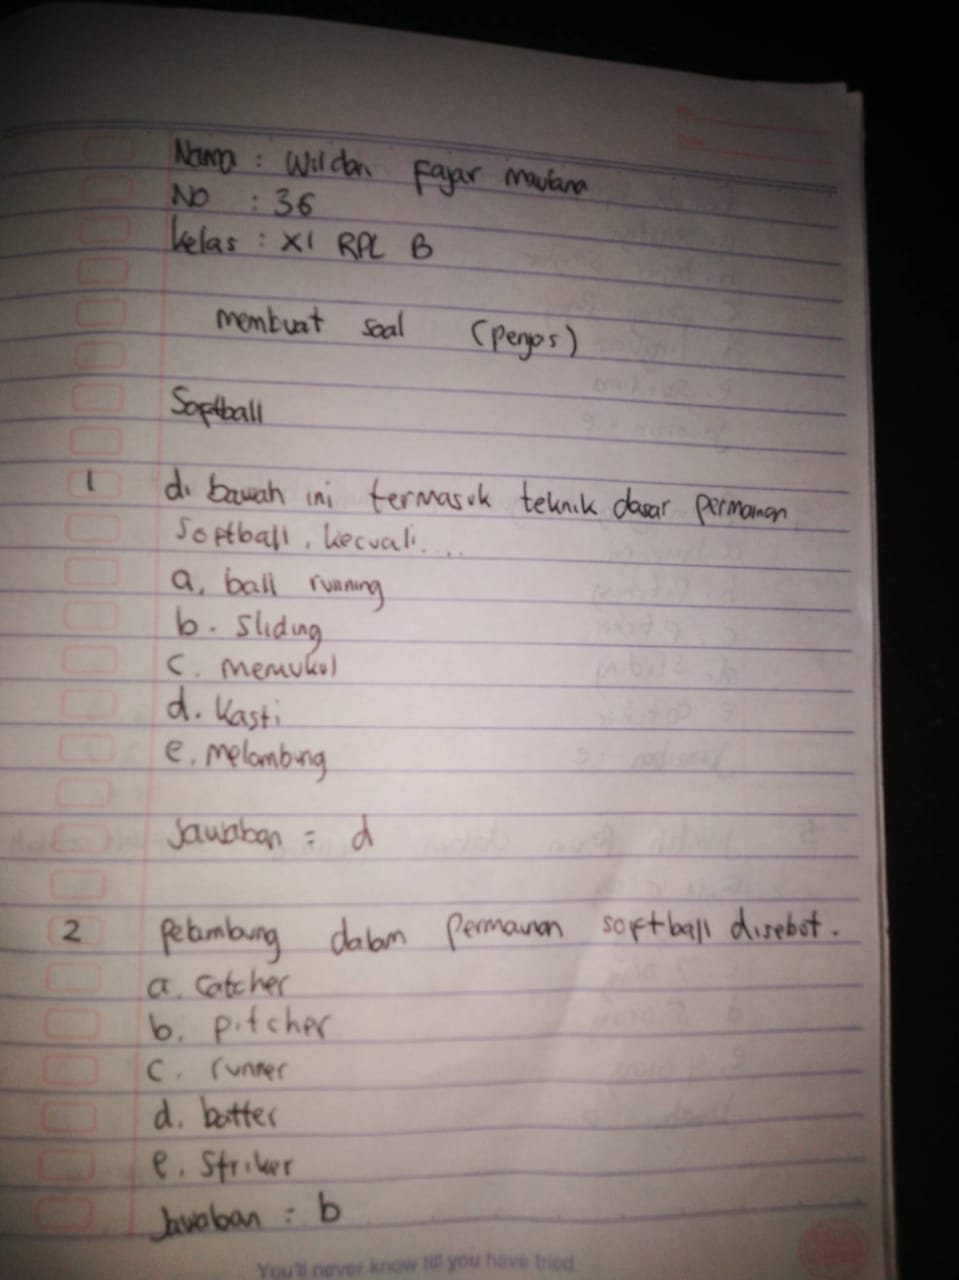 Nama : Wildan Fajar maulana
No : 36
kelas : XI RPL B
membuat soal (penjas)
Softball
1 di bawah ini termasuk teknik dasar permainan
softball, kecuali....
a. ball running
b. sliding
c. memukul
d. kasti
e. melambung
Jawaban = d
2 pelambung dalam permainan softball disebut.
a. catcher
b. pitcher
c. runner
d. batter
e. striker
Jawaban = b
You'll never know till you have tried